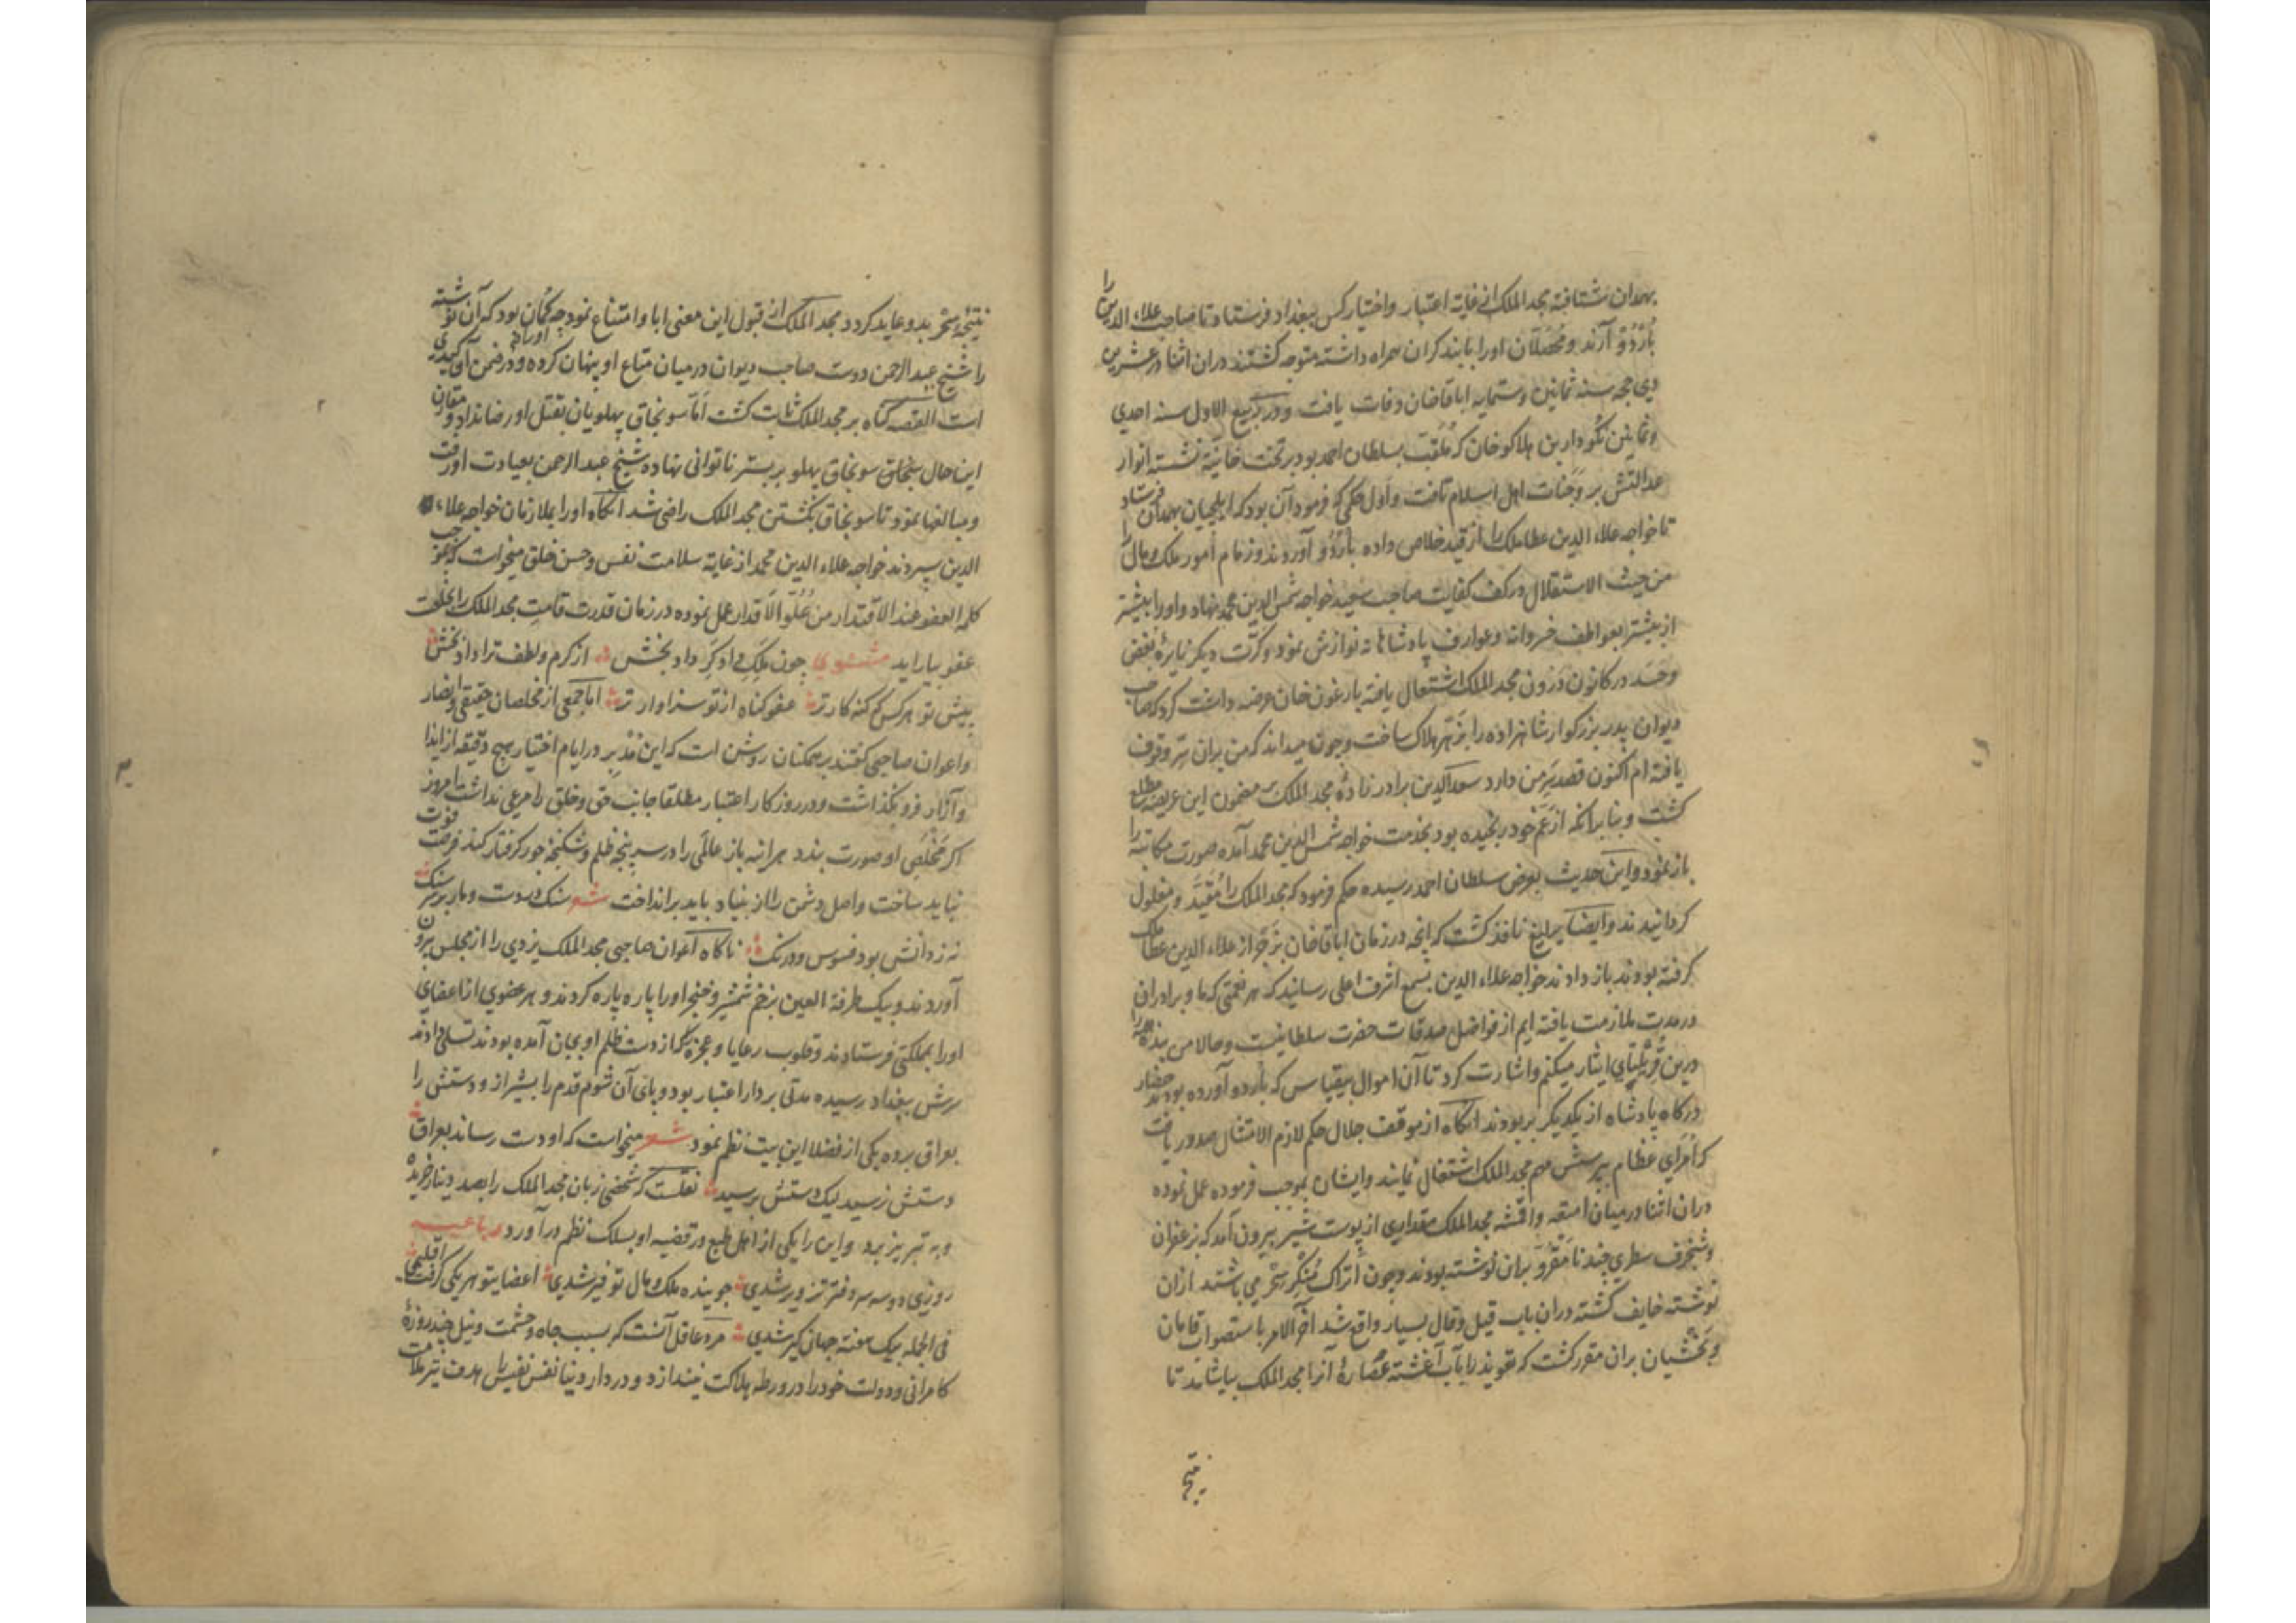 بهمدان شتافته مجد الملک از غایة اعتبار و اختیار کس ببغداد فرستاد تا صاحب علاء الدین را
بأُرْدُوْ آرند و مُحَصّلان او را بابند کران همراه داشته متوجه کشتند دران اثنا در عشرین
ذی حجه سنه ثمانین و ستمایه اباقاخان وفات یافت و در ربیع الاول سنه احدی
و ثمانین نکودار بن هلاکوخان که ملقب بسلطان احمد بود بر تخت خانیّة نشسته انوار
عدالتش بر وَجَنات اهل اسلام تافت و اول حکمی که فرمود آن بود که ایلچیان بهمدان فرستاد
تا خواجه علاء الدین عطاملک را از قید خلاص داده باُرْدُو آوردند و زمام امور ملک و مال را
من حیث الاستقلال در کف کفایت صاحب سعید خواجه شمس الدین محمد نهاد و او را بیشتر
از پیشتر بعواطف خسروانه و عوارف پادشاهانه نوازش نمود و کرّت دیکر نایرهٔ بغض
و حسد در کانون دَرون مجد الملک اشتعال یافته بارغون خان عرضه داشت کرد که صاحب
دیوان پدر بزرکوار شاهزاده را بزهر هلاک ساخت و چون میداند که من بران سرّ وقوف
یافته ام اکنون قصد سَرِ من دارد سعدالدین برادر زادهٔ مجد الملک بر مضمون این عریضه مطلع
کشت و بنا برانکه از عَم خود رنجیده بود بخدمت خواجه شمس الدین محمد آمده صورت مکاتبة را
باز نمود و این حدیث بعرض سلطان احمد رسیده حکم فرمود که مجد الملک را مقیَّد و مغلول
کردانیدند و ایضا یرلیغ نافذ کشت که انچه در زمان اباقاخان بزجر از علاء الدین عطا ملک
کرفته بودند باز دادند خواجه علاء الدین بسمع اشرف اعلی رسانید که هر نعمتی که ما و برادران
در مدت ملازمت یافته ایم از فواضل صدقات حضرت سلطانیست و حالا من بنده همه را
درین قُوریلتای ایثار میکنم و اشارت کرد تا آن اموال بیقیاس که بأردو آورده بودند حضار
درکاه پادشاه از یکدیکر بربودند انکاه از موقف جلال حکم لازم الامتثال صدور یافت
که اُمرای عظام بپرسش مهم مجد الملک اشتغال نمایند و ایشان بموجب فرموده عمل نموده
دران اثنا در میان امتعه و اقمشه مجد الملک مقداری از پوست شیر بیرون آمد که بزعفران
و شنجرف سطری چند نامَقْرُوّ بران نوشته بودند و چون اتراک مُنکِر سحر می باشند ازان
نوشته خایف کشته دران باب قیل و قال بسیار واقع شد آخر الامر باستصواب قامان
و بخشیان بران مقرر کشت که تعویذ را بآب آغشته عصارهٔ آنرا مجد الملک بیاشامد تا
نتیجه
نتیجهٔ سحر بدو عاید کردد مجد الملک از قبول این معنی ابا و امتناع نمود چه کمان او را بود که آن نوشته
را شیخ عبد الرحمن دوست صاحب دیوان در میان متاع او پنهان کرده و در ضمن آن کیدی
است القصه کناه بر مجد الملک ثابت کشت اَمّا سونجاق پهلویان بقتل او رضا نداد و مقارن
این حال سونجاق پهلو بر بستر ناتوانی نهاده شیخ عبد الرحمن بعیادت او رفت
و مبالغها نمود تا سونجاق بکشتن مجد الملک راضی شد انکاه او را بملازمان خواجه علاء
الدین سپردند خواجه علاء الدین محمد از غایة سلامت نفس و حسن خلق میخواست که بموجب
کلمه العفو عند الاقتدار من عُلُوّ الاَقدار عمل نموده در زمان قدرت قامتِ مجد الملک را بخلعت
عفو بیاراید مثنوی چون مَلِکِ دادکَر داد بخش از کرم و لطف ترا داد بخش
پیش تو هر کس که کنه کارتر عفو کناه از تو سزاوارتر اما جمعی از مخلصان حقیقی و انصار
و اعوان صاحبی کفتند برهمکنان روشن است که این مُدْبِر در ایام اختیار هیچ دقیقه از ایذا
و آزار فرو نکذاشت و در روز کار اعتبار مطلقا جانب حق و خلق را مرعی نداشت امروز
اکر مَخْلَصِی او صورت بندد هرآینه باز عالَمی را در سرپنجه ظلم و شکنجهٔ جور کرفتار کند فرصت فوت
نباید ساخت و اصل دشمن را از بنیاد باید برانداخت شعر سنک در دست و مار بر سر سنک
نه ز دانش بود فسوس و درنک ناکاه اعوان صاحبی مجد الملک یزدی را از مجلس بیرون
آوردند و بیک طرفة العین بزخم شمشیر و خنجر او را پاره پاره کردند و هر عضوی از اعضای
او را بمملکتی فرستادند و قلوب رعایا و عجزه که از دست ظلم او بجان آمده بودند تسلی دادند
سرش ببغداد رسیده مدتی بر دار اعتبار بود و پای آن شوم قدم را بشیراز و دستش را
بعراق برده یکی از فضلا این بیت نظم نمود شعر میخواست که او دست رساند بعراق
دستش نرسید لیک دستش برسید نقلست که شخصی زبان مجد الملک را بصد دینار خریده
و به تبریز برد و این را یکی از اهل طبع در قضیه او بسلک نظم درآورد رباعیه
روزی دو سه سر دفتر تزویر شدی جوینده ملک و مال توفیر شدی اعضای تو هر یکی کرفت اقلیمی
فی الجمله بیک هفته جهان کیر شدی مرد عاقل آنست که بسبب جاه و حشمت و نیل چند روزهٔ
کامرانی و دولت خود را در ورطه هلاکت نیندازد و در دار دنیا نفس نفیس را هدف تیر ملامت